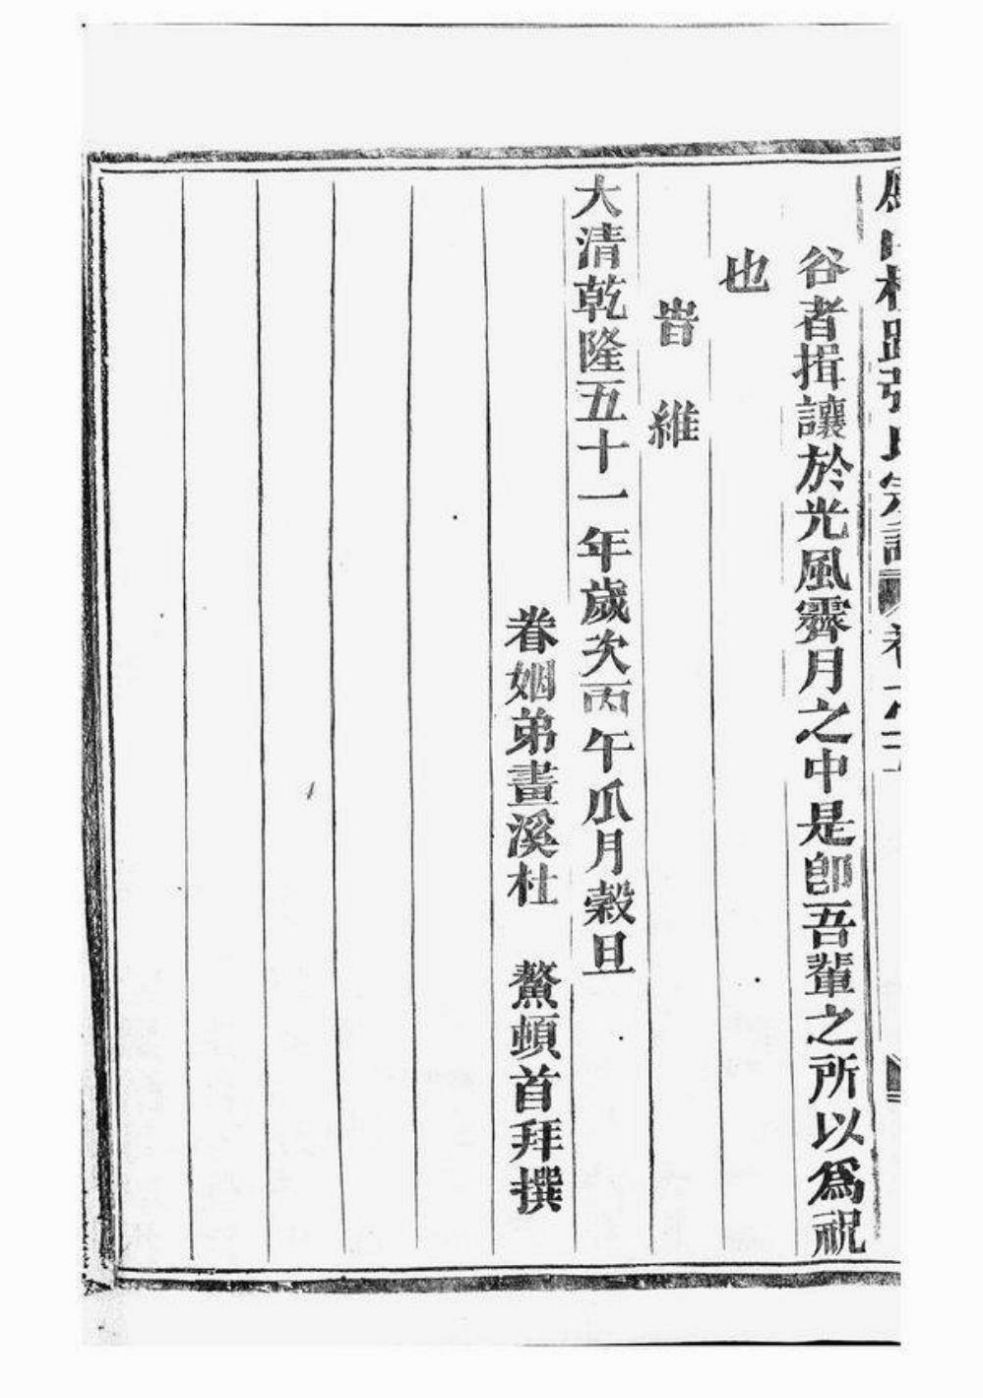 張氏宗譜
谷者揖讓於光風霽月之中是卽吾輩之所以爲祝
也
旹　維
大清乾隆五十一年歲次丙午瓜月穀旦
眷姻弟畫溪杜　鰲頓首拜撰